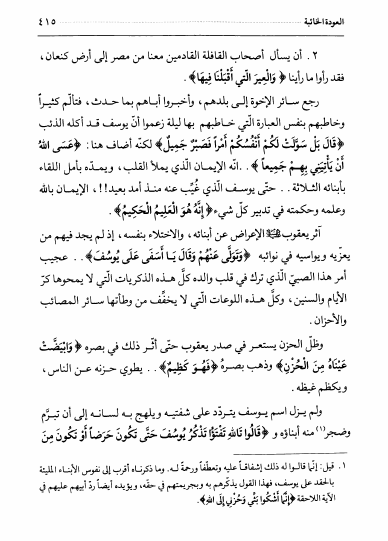 العودة الخائبة ٤١٥
٢ . أن يسأل أصحاب القافلة القادمين معنا من مصر إلى أرض كنعان،
فقد رأوا ما رأينا ﴿ وَالْعِيرَ الَّتِي أَقْبَلْنَا فِيهَا﴾ .
رجع سائر الإخوة إلى بلدهم، وأخبروا أباهم بما حدث، فتألّم كثيراً
وخاطبهم بنفس العبارة الّتي خاطبهم بها ليلة زعموا أنّ يوسف قد أكله الذئب
﴿قَالَ بَلْ سَوَّلَتْ لَكُمْ أَنْفُسُكُمْ أَمْراً فَصَبْرٌ جَمِيلٌ﴾ لكنّه أضاف هنا: ﴿عَسَى اللهُ
أَنْ يَأْتِيَنِي بِهِمْ جَمِيعاً﴾ . . انّه الإيمان الّذي يملأ القلب، ويمدّه بأمل اللقاء
بأبنائه الثلاثة . . حتّى يوسف الّذي غُيّب عنه منذ أمد بعيد!!، الإيمان بالله
وعلمه وحكمته في تدبير كلّ شيء ﴿إِنَّهُ هُوَ الْعَلِيمُ الْحَكِيمُ﴾ .
آثر يعقوب الإعراض عن أبنائه، والاختلاء بنفسه، إذ لم يجد فيهم من
يعزّيه ويواسيه في نوائبه ﴿وَتَوَلَّى عَنْهُمْ وَقَالَ يَا أَسَفَى عَلَى يُوسُفَ﴾ . . عجيب
أمر هذا الصبيّ الّذي ترك في قلب والده كلّ هذه الذكريات الّتي لا يمحوها كرّ
الأيّام والسنين، وكلَّ هذه اللوعات الّتي لا يخفِّف من وطأتها سائر المصائب
والأحزان .
وظلّ الحزن يستعر في صدر يعقوب حتّى أثّر ذلك في بصره ﴿وَابْيَضَّتْ
عَيْنَاهُ مِنَ الْحُزْنِ﴾ وذهب بصرهُ ﴿فَهُوَ كَظِيمٌ﴾ . . يطوي حزنه عن الناس،
ويكظم غيظه .
ولم يزل اسم يوسف يتردّد على شفتيه ويلهج به لسانه إلى أن تبرَّم
وضجر(١) منه أبناؤه و ﴿قَالُوا تَاللهِ تَفْتَؤُا تَذْكُرُ يُوسُفَ حَتَّى تَكُونَ حَرَضاً أَوْ تَكُونَ مِنَ
١ . قيل: إنّما قالوا له ذلك إشفاقاً عليه وتعطّفاً ورحمة لـه . وما ذكرناه أقرب إلى نفوس الأبناء المليئة
بالحقد على يوسف، فهذا القول يذكّرهم به وبجريمتهم في حقّه، ويؤيده أيضاً ردّ أبيهم عليهم في
الآية اللاحقة ﴿إِنَّمَا أَشْكُوا بَثِّي وَحُزْنِي إِلَى اللهِ﴾ .